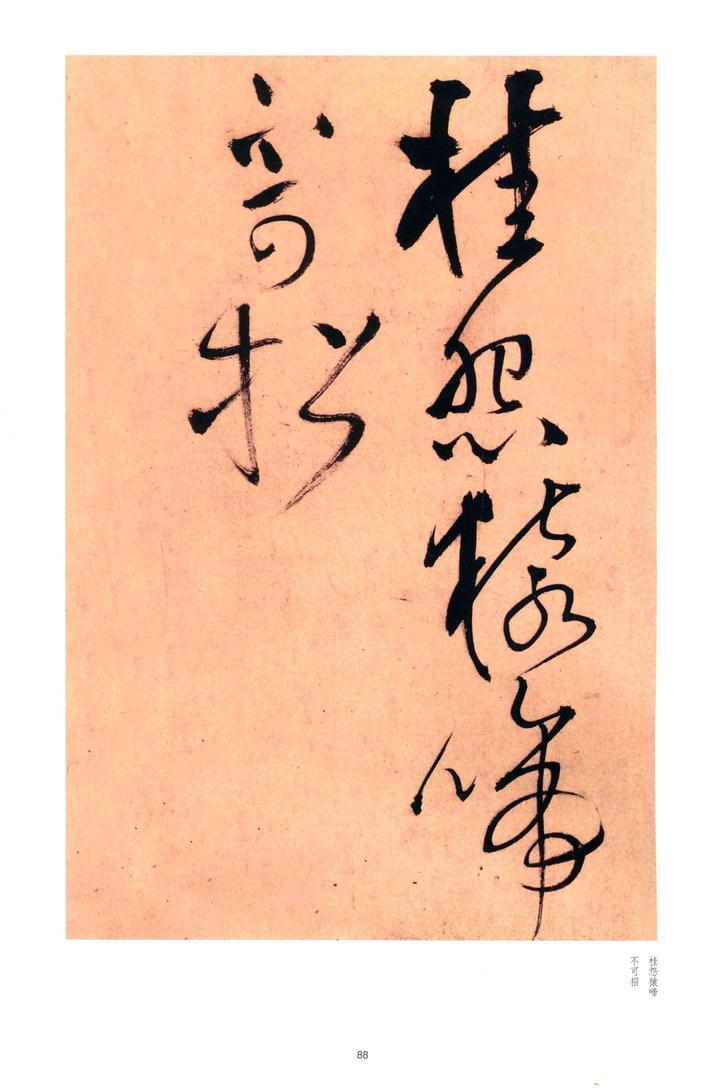 桂怨猿啼
不可招
桂怨猿啼
不可招
88